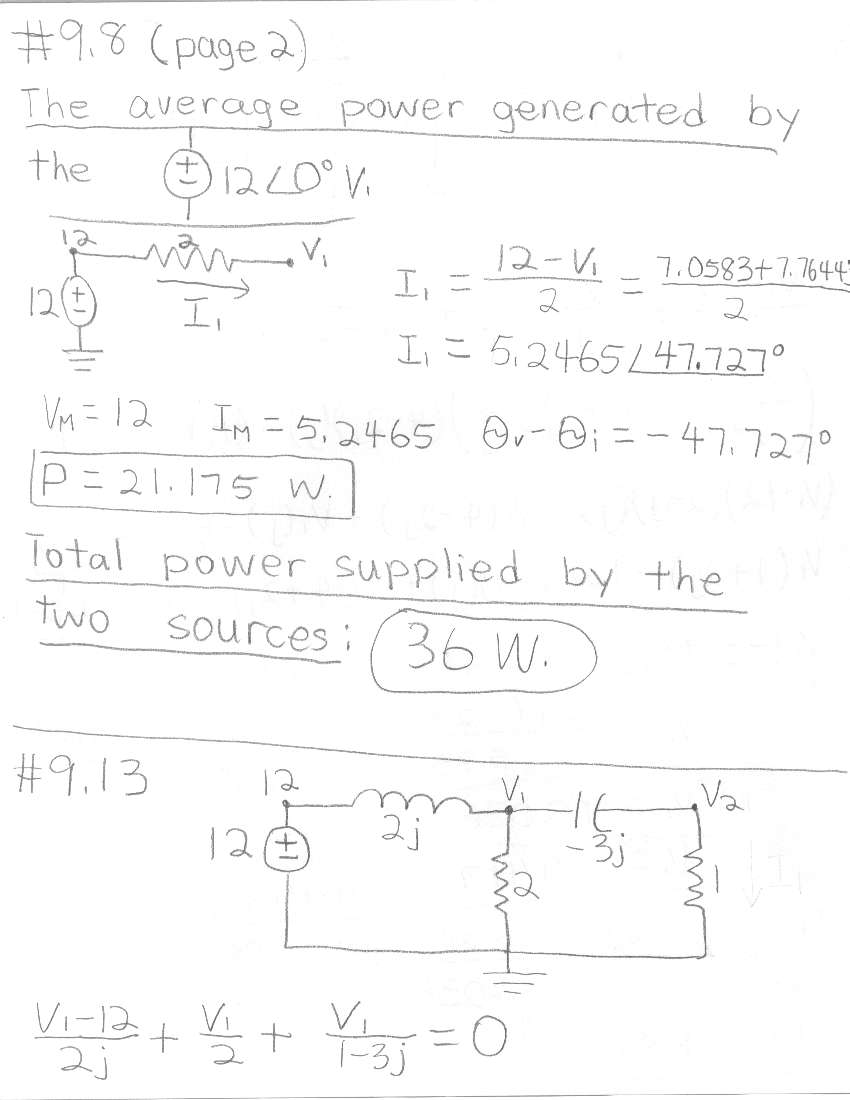 #9.8 (page 2)
The average power generated by
the + - 12∠0° V.
12 2 V₁
12 + - I₁
I₁ = (12 - V₁)/2 = (7.0583 + 7.7644)/2
I₁ = 5.2465∠47.727°
V_M = 12 I_M = 5.2465 θ_v - θ_i = -47.727°
P = 21.175 W.
Total power supplied by the
two sources: 36 W.
#9.13
12 V₁ V₂
12 + - 2j 2 -3j 1
(V₁-12)/2j + V₁/2 + V₁/(1-3j) = 0